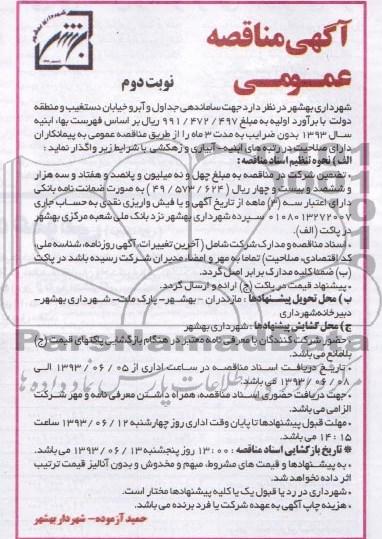 شهرداری بهشهر
آگهی مناقصه
عمـــومـــی
نوبت دوم
شهرداری بهشهر در نظر دارد جهت ساماندهی جداول و آبرو خیابان دستغیب و منطقه
دولت با برآورد اولیه به مبلغ ۴۹۷ / ۴۷۲ / ۹۹۱ ریال بر اساس فهرست بها، ابنیه
سال ۱۳۹۳ بدون ضرایب به مدت ۳ ماه را از طریق مناقصه عمومی به پیمانکاران
دارای صلاحیت در رتبه های ابنیه - آبیاری و زهکشی با شرایط زیر واگذار نماید :
الف) نحوه تنظیم اسناد مناقصه :
- تضمین شرکت در مناقصه به مبلغ چهل و نه میلیون و پانصد و هفتاد و سه هزار
و ششصد و بیست و چهار ریال ( ۶۲۴ / ۵۷۳ / ۴۹ ) به صورت ضمانت نامه بانکی
دارای اعتبار سه (۳) ماهه از تاریخ آگهی و یا فیش واریزی نقدی به حساب جاری
۰۱۰۸۰۱۳۲۷۲۰۰۷ سپرده شهرداری بهشهر نزد بانک ملی شعبه مرکزی بهشهر
در پاکت (الف).
- اسناد مناقصه و مدارک شرکت شامل ( آخرین تغییرات، آگهی روزنامه، شناسه ملی،
کد اقتصادی، صلاحیت) تماما به مهر و امضاء مدیران شرکت رسیده باشد در پاکت
(ب) ضمنا کلیه مدارک برابر اصل گردد.
- پیشنهاد قیمت در پاکت (ج) ارائه و ارسال گردد.
ب ) محل تحویل پیشنهادها : مازندران - بهشهر- پارک ملت- شهرداری بهشهر-
دبیرخانه شهرداری
ج) محل گشایش پیشنهادها : شهرداری بهشهر
- حضور شرکت کنندگان با معرفی نامه معتبر در هنگام بازگشایی پاکتهای قیمت (ج)
بلامانع می باشد.
- تاریخ دریافت اسناد مناقصه در ساعت اداری از ۰۵ / ۰۶ / ۱۳۹۳ الی
۰۸ / ۰۶ / ۱۳۹۳ می باشد.
- جهت دریافت حضوری اسناد مناقصه، همراه داشتن معرفی نامه و مهر شرکت
الزامی می باشد.
- مهلت قبول پیشنهادها تا پایان وقت اداری روز چهارشنبه ۱۲ / ۰۶ / ۱۳۹۳ ساعت
۱۴:۱۵ می باشد.
* تاریخ بازگشایی اسناد مناقصه : ۱۳:۰۰ روز پنجشنبه ۱۳ / ۰۶ / ۱۳۹۳ می باشد.
- به پیشنهادها و قیمت های مشروط، مبهم و مخدوش و بدون آنالیز قیمت ترتیب
اثر داده نخواهد شد.
- شهرداری در رد یا قبول یک یا کلیه پیشنهادها مختار است.
- هزینه چاپ آگهی به عهده شرکت یا فرد برنده می باشد.
حمید آزموده - شهردار بهشهر